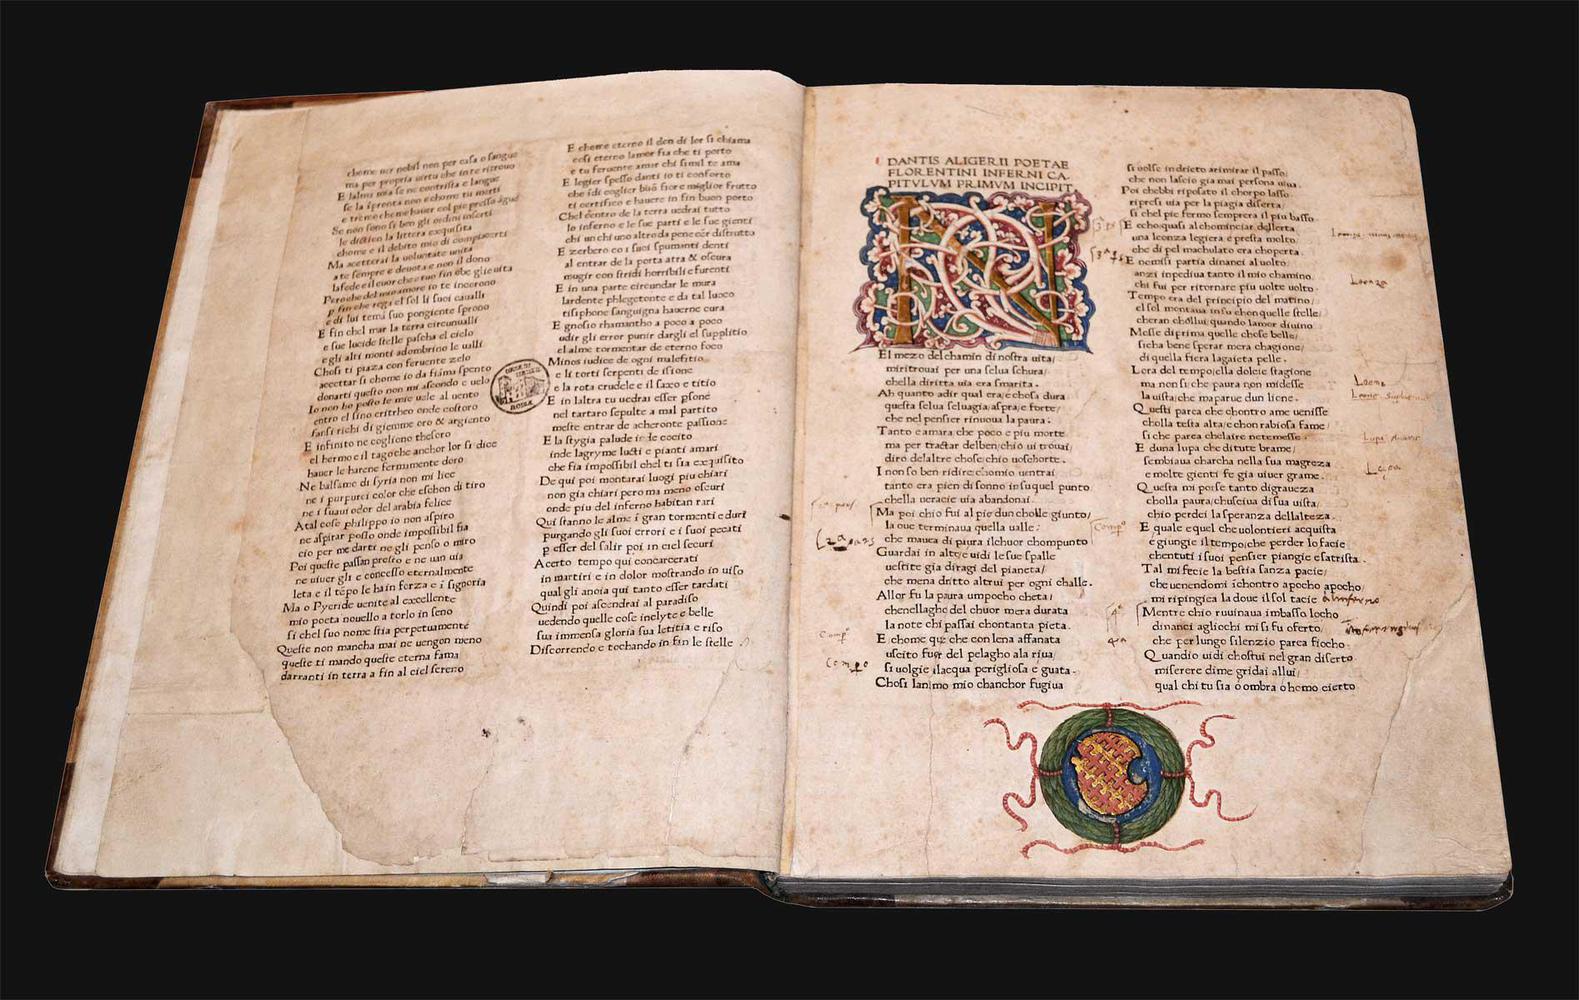 chome uer nobil non per casa o sangue
ma per propria uirtu che in te ritrouo
E lalma mia se ne contrista e langue
se la spronta non e chome tu merti
e tremo che me hauer col pie presso
Se non sono si ben gli ordini inserti
le dictien la littera exquisita
chome e il debito mio di compiacerti
Ma accetterai la uoluntate unita
a te sempre e deuota e non il dono
la fede e il cuor che e tuo fin
Pero che del mio amore io te incorono
e di lui temi suo pongiente sprono
E fin chel mar la terra circunualli
e sue lucide stelle pascha el cielo
e gli alti monti adombrino le ualli
Chosi ti piaza con feruente zelo
accettar si chome io da fiāma spento
donarti questo non mi ascondo e uelo
Io non ho posto le mie uele al uento
entro el sino eritrheo onde costoro
farsi richi di giemme oro & argiento
E infinito ne cogliono thesoro
el hermo e il tago che anchor lor si dice
hauer le harene fermamente doro
Ne balsamo di syria non mi lice
ne i purpurei color che eschon di tiro
ne i suaui odor del arabia felice
Atal cose philippo io non aspiro
ne aspirar posso onde impossibil fia
cio per me darti ne gli penso o miro
Poi queste passan presto e ne uan uia
ne uiuer gli e concesso eternalmente
leta e il tēpo le ha in forza e i signoria
Ma o Pyeride uenite al excellente
mio poeta nouello a torlo in seno
si chel suo nome stia perpetuamente
Queste non mancha mai ne uengon meno
queste ti mando queste eterna fama
darranti in terra a fin al ciel sereno
E chome eterno il den di lor si chiama
cosi eterno lamor fia che ti porto
e tu feruente amar chi simil te ama
E legier spesso danti io ti conforto
che idi coglier buō fiore e miglior frutto
ti certifico e hauere in fin buon porto
Chel centro de la terra uedrai tutto
lo inferno e le sue parti e le sue gienti
chi un chi uno altro da pene eēr distrutto
E zerbero co i suoi spumanti denti
al entrar de la porta atra & oscura
mugir con stridi horribili e furenti
E in una parte circundar le mura
lardente phlegetonte e da tal luoco
tisiphone sanguigna hauerne cura
E gnosio rhamantho a poco a poco
udir gli error punir dargli el supplitio
el alme tormentar de eterno foco
Minos iudice de ogni malefitio
e li torti serpenti de isione
e la rota crudele e il saxo e titio
E in laltra tu uedrai esser ꝑsone
nel tartaro sepulte a mal partito
meste entrar de acheronte passione
E la stygia palude i de cocito
inde lagryme lucti e pianti amari
che fia impossibil chel ti sia exquisito
De qui poi montarai luogi piu chiari
non gia chiari pero ma meno oscuri
onde piu del inferno habitan rari
Qui stanno le alme i gran tormenti e duri
purgando gli suoi errori e i suoi pecati
ꝑ esser del salir poi in ciel securi
Acerto tempo qui concarcerati
in martiri e in dolor mostrando in uiso
qual gli anoia qui tanto esser tardati
Quindi poi ascendrai al paradiso
uedendo quelle cose inclyte e belle
sua immensa gloria sua letitia e riso
Discorrendo e tochando in fin le stelle
DOGUE DI
ROMA
DANTIS ALIGERII POETAE
FLORENTINI INFERNI CA-
PITVLVM PRIMVM INCIPIT.
N
El mezo del chamin di nostra uita/
mi ritrouai per una selua schura/
chella diritta uia era smarita.
Ah quanto adir qual era/e chosa dura
questa selua seluagia/aspra/e forte/
che nel pensier rinuoua la paura.
Tanto e amara che poco e piu morte
ma per tractar del ben/chio ui trouai/
diro del altre chose chio uo schorte.
I non so ben ridire/chomio uentrai/
tanto era pien di sonno in suquel punto
chella ueracie uia abandonai.
Ma poi chio fui al pie dun cholle giunto/
la oue terminaua quella ualle:
che mauea di paura ilchuor chompunto
Guardai in alto/e uidi le sue spalle
uestite gia di ragi del pianeta/
che mena dritto altrui per ogni challe.
Allor fu la paura umpocho cheta/
chenellagho del chuor mera durata
la note chi passai chontanta pieta.
E chome que che con lena affanata
uscito fuor del pelagho ala riua/
si uolgie ilacqua perigliosa e guata.
Chosi lanimo mio chanchor fugiua
si uolse indrieto arimirar il passo/
che non lascio gia mai persona uiua.
Poi chebbi riposato il chorpo lasso
ripresi uia per la piagia diserta/
si chel pie fermo sempre era il piu basso.
E echo quasi al chominciar dellerta
una leonza legiera e presta molto
che di pel machulato era choperta.
E nemisi partia dinanci al uolto
anzi inpediua tanto il mio chamino
chi fui per ritornare piu uolte uolto.
Tempo era del principio del matino/
el sol montaua in su chon quelle stelle/
cheran chollui quando lamor diuino
Messe diprima quelle chose belle/
sicha bene sperar mera chagione/
di quella fiera la gaieta pelle.
Lora del tempo/ella dolcie stagione
ma non si/che paura non midesse
la uista/che maparue dun lione.
Questi parea che chontro ame uenisse
cholla testa alta/e chon rabiosa fame/
si che parea che laire ne temesse.
E duna lupa che ditute brame/
sembiaua charcha nella sua magreza
e molte gienti fe gia uiuer grame.
Questa mi porse tanto digraueza
cholla paura/chusciua di sua uista/
chio perdei la speranza dellalteza.
E quale e quel che uolontieri acquista
e giungie il tempo/che perder lo facie
chentuti i suoi pensier piangie e satrista.
Tal mi fecie la bestia sanza pacie/
che uenendomi ichontro apocho apocho/
mi ripingiea la doue il sol tacie
Mentre chio ruuinaua imbasso locho
dinanci agliochi mi si fu oferto/
che per lungo silenzio parea fiocho
Quandio uidi chostui nel gran diserto
miserere di me gridai allui/
qual chi tu sia o ombra o homo cierto
Leonza
Leone
Lupa
Compᵒ
Compᵒ
Compᵒ